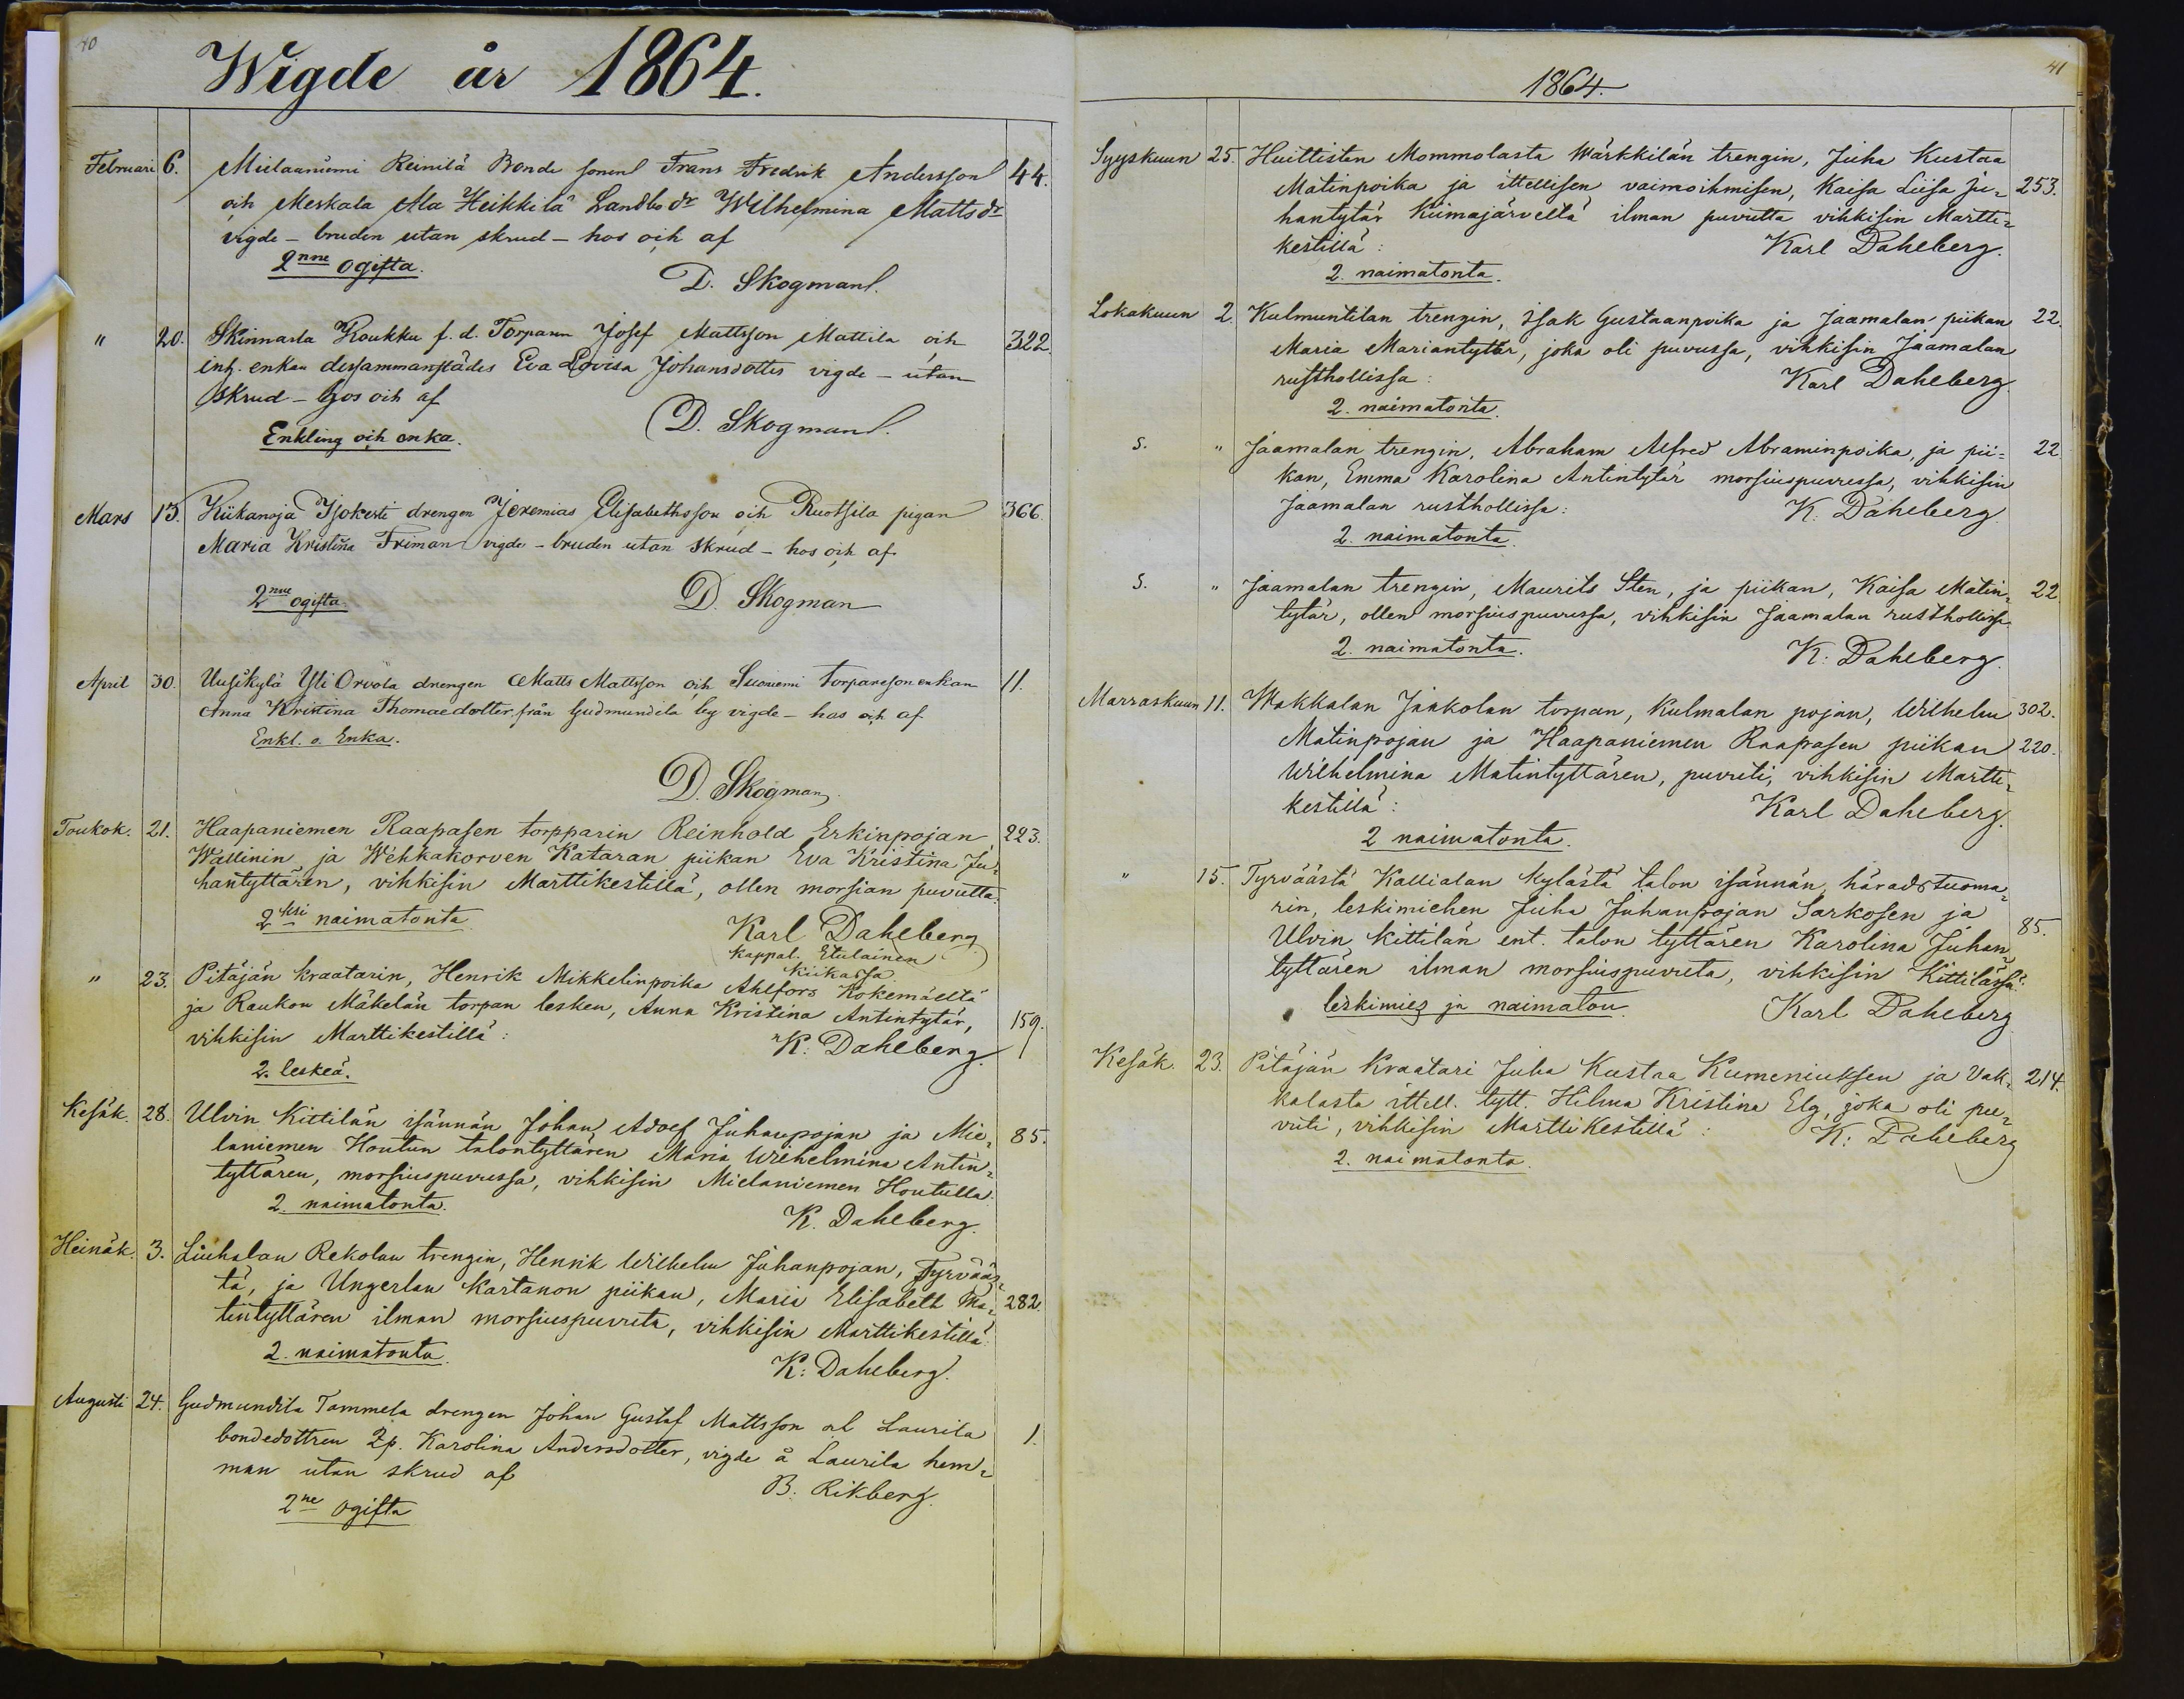 40
Wigde år 1864.
Februari 6. Mielaaniemi Reinilä Bonde sonen Frans Fredrik Andersson 44.
och Meskala Ala Heikkilä Landbodr Wilhelmina Mattsdr
vigde – bruden utan skrud – hos och af
2nne ogifta.
D. Skogman.
" 20. Skinnarla Koukku f. d. Torparen Josef Mattsson Mattila och 322.
inh. enkan dersammanstädes Eva Lovisa Johansdotter vigde – utan
skrud – hos och af
Enkling och enka.
D. Skogman.
Mars 13. Kiikanoja drengen Jeremias Elisabethsson och Ruotsila pigan 366.
Maria Kristina Friman vigde – bruden utan skrud – hos och af
2nne ogifta.
D. Skogman
April 30. Uusikylä Yli Orvola drengen Matts Mattsson och Suoniemi torparesonenkan 11.
Anna Kristina Thomaedotter från Gudmundila by vigde – hos och af
Enkl. o. Enka.
D. Skogman.
Toukok. 21. Haapaniemen Raapasen torpparin Reinhold Erkinpojan 223.
Wallinin, ja Wehkakorven Kataran piikan Eva Kristina Ju-
hantyttären, vihkisin Marttikestillä, ollen morsian puvutta.
2ksi naimatonta
Karl Dahlberg
Kappal. Etulainen
Kiikassa
" 23. Pitäjän kraatarin, Henrik Mikkelinpoika Ahlfors Kokemäeltä
ja Raukon Mäkelän torpan lesken, Anna Kristina Antintytär, 159.
vihkisin Marttikestillä:
K: Dahlberg.
2. leskeä.
Kesäk. 28. Ulvin Kittilän isännän Johan Adolf Juhanpojan ja Mie- 85.
laniemen Houtun talontyttären Maria Wilhelmina Antin-
tyttären, morsiuspuvussa, vihkisin Mielaniemen Houtulla.
2. naimatonta.
K. Dahlberg.
Heinäk. 3. Liuhalan Rekolan trengin, Henrik Wilhelm Juhanpojan, Tyrvääs-
tä, ja Ungerlan Kartanon piikan, Maria Elisabeth Ma- 282.
tintyttären ilman morsiuspuvuta, vihkisin Marttikestillä.
2. naimatonta.
K: Dahlberg.
Augusti 24. Gudmundila Tammela drengen Johan Gustaf Mattsson o Laurila 1.
bondedottren Karolina Andersdotter, vigde å Laurila hem-
man utan skrud af
B. Rikberg.
2ne ogifta
41
1864.
Syyskuun 25. Huittisten Mommolasta Wärkkilän trengin, Juha Kustaa
Matinpoika ja ittellisen vaimoihmisen, Kaisa Liisa Ju- 253.
hantytär Kiimajärveltä ilman puvutta vihkisin Martti-
kestillä:
Karl Dahlberg.
2. naimatonta.
Lokakuun 2. Kulmuntilan trengin, Isak Gustaanpoika ja Jaamalan piikan 22.
Maria Mariantytär, joka oli puvussa, vihkisin Jaamalan
rusthollissa:
Karl Dahlberg
2. naimatonta.
S. " Jaamalan trengin, Abraham Alfred Abraminpoika, ja pii- 22.
kan, Emma Karolina Antintytär morsiuspuvussa, vihkisin
Jaamalan rusthollissa:
K: Dahlberg.
2. naimatonta.
S. " Jaamalan trengin, Maurits Sten, ja piikan, Kaisa Matin- 22.
tytär, ollen morsiuspuvussa, vihkisin Jaamalan rusthollissa.
2. naimatonta.
K: Dahlberg.
Marraskuun 11. Wakkalan Jaakolan torpan, Kulmalan pojan, Wilhelm 302.
Matinpojan ja Haapaniemen Raapasen piikan 220.
Wilhelmina Matintyttären, puvuti, vihkisin Martti-
kestillä:
Karl Dahlberg.
2 naimatonta.
" 15. Tyrväästä Kallialan kylästä talon isännän, häradstuoma-
rin, leskimiehen Juha Juhanpojan Sarkosen ja 85.
Ulvin Kittilän ent. talon tyttären Karolina Juhan-
tyttären ilman morsiuspuvuta, vihkisin Kittilässä:
leskimies ja naimaton.
Karl Dahlberg
Kesäk. 23. Pitäjän Kraatari Juha Kustaa Kumeniuksen ja Vak- 214.
kalasta ittell. tytt. Hilma Kristina Elg, joka oli pu-
vuti, vihkisin Marttikestillä:
K: Dahlberg
2. naimatonta.